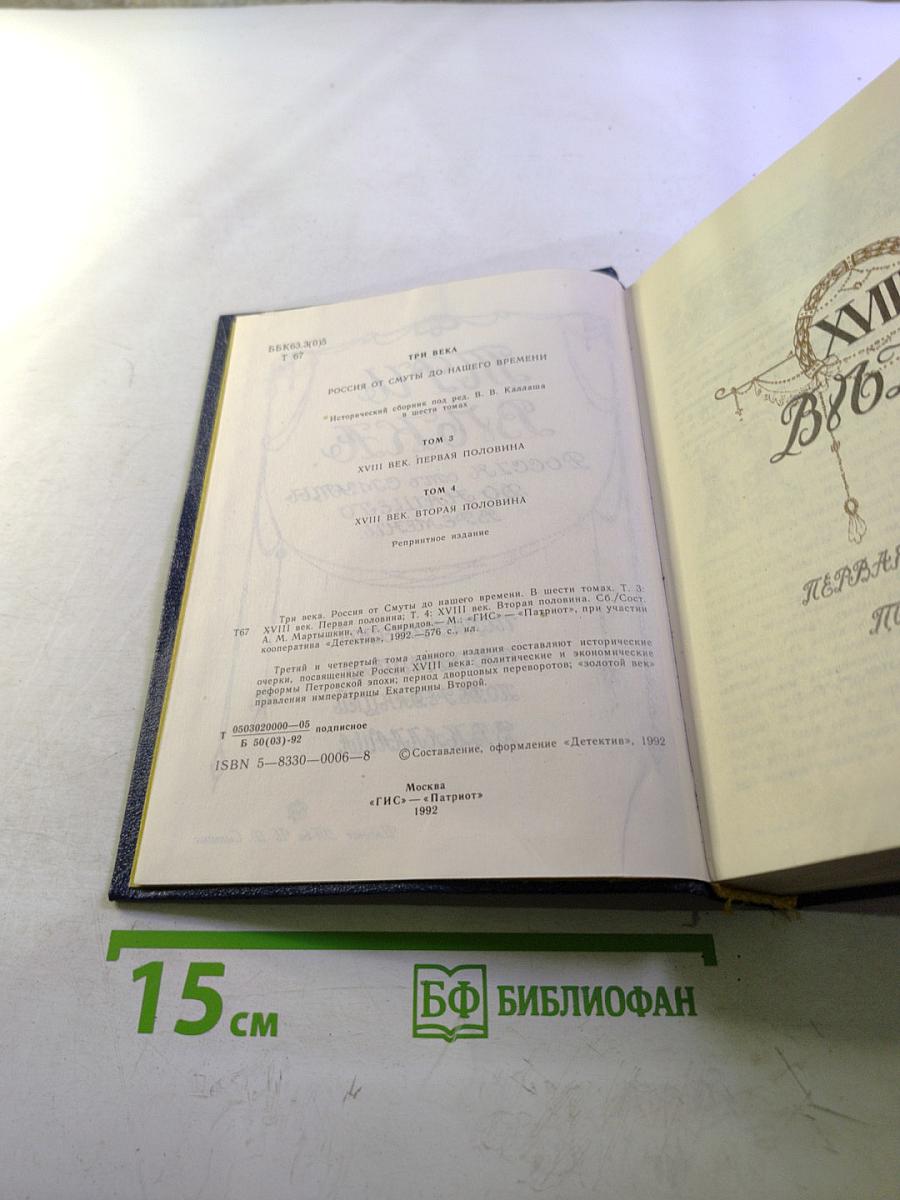 ББК63.3(0)5
Т 67
ТРИ ВЕКА
РОССИЯ ОТ СМУТЫ ДО НАШЕГО ВРЕМЕНИ
Исторический сборник под ред. В. В. Каллаша
в шести томах
ТОМ 3
XVIII ВЕК. ПЕРВАЯ ПОЛОВИНА
ТОМ 4
XVIII ВЕК. ВТОРАЯ ПОЛОВИНА
Репринтное издание
Три века. Россия от Смуты до нашего времени. В шести томах. Т. 3:
Т67 XVIII век. Первая половина; Т. 4: XVIII век. Вторая половина. Сб./Сост.
А. М. Мартышкин, А. Г. Свиридов.— М.: «ГИС» — «Патриот», при участии
кооператива «Детектив», 1992.—576 с., ил.
Третий и четвертый тома данного издания составляют исторические
очерки, посвященные России XVIII века: политические и экономические
реформы Петровской эпохи; период дворцовых переворотов; «золотой век»
правления императрицы Екатерины Второй.
Т 0503020000—05 подписное
Б 50(03)-92
ISBN 5—8330—0006—8 ©Составление, оформление «Детектив», 1992
Москва
«ГИС» — «Патриот»
1992
XVIII
ПЕРВАЯ
15 см
БФ БИБЛИОФАН